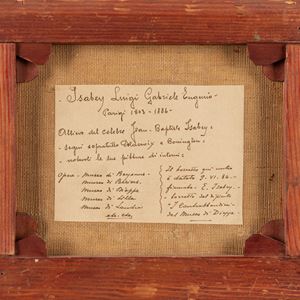 Isabey Luigi Gabriele Eugenio -
Parigi 1803 - 1886 -
Allievo del celebre Jean-Baptiste Isabey:
seguì sopratutto Delacroix e Bonington:
notevoli le sue pitture di interni:
Opere - Museo di Bayonne -
Museo di Béziers.
Museo di Dieppe
Museo di Lilla
Museo di Londra
etc. etc.
Il bozzetto qui unito
è datato 9. VI. 64 -
firmato: E. Isabey.
bozzetto del dipinto
"I Contrabbandieri"
del Museo di Dieppe.